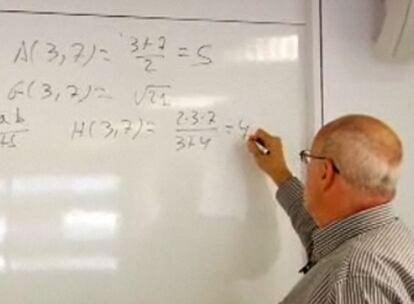 A(3,7) = 3+7/2 = 5
G(3,7) = √21
ab/+5 H(3,7) = 2·3·7/3+4 = 4